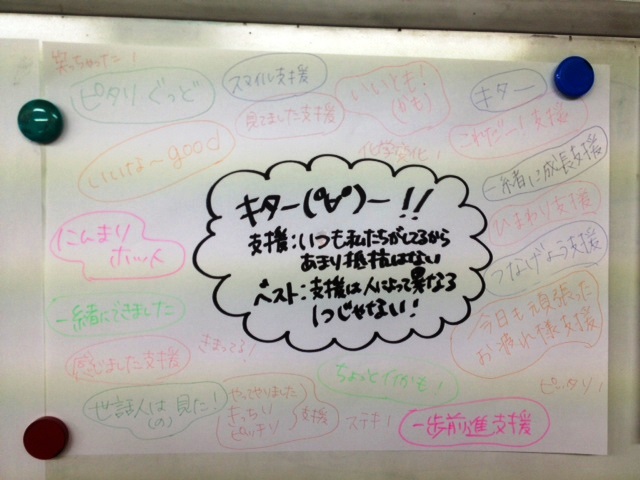 笑っちゃった!
ピタリぐっど
スマイル支援
見てました支援
いいとも!
(かも)
キター
これだー!支援
化学変化!
いいけな~good
一緒に成長支援
キター(°∀°)ー!!
支援:いつも私たちがしてるから
あまり抵抗はない
ベスト:支援は人によって異なる
1つじゃない!
ひまわり支援
にんまり
ホット
つなげよう支援
一緒にできました
今日も頑張った
お疲れ様支援
感じました支援
きまってる!
ちょっとイイかも!
ピッタリ!
世話人は見た!
(の)
やってやりました
きっちり
ピッチリ
支援
ステキ!
一歩前進支援